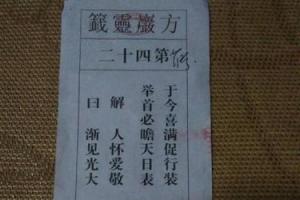 方巖靈籤
第四十二
于今喜满促行装
举首必瞻天日表
解曰
人怀爱敬
渐见光大